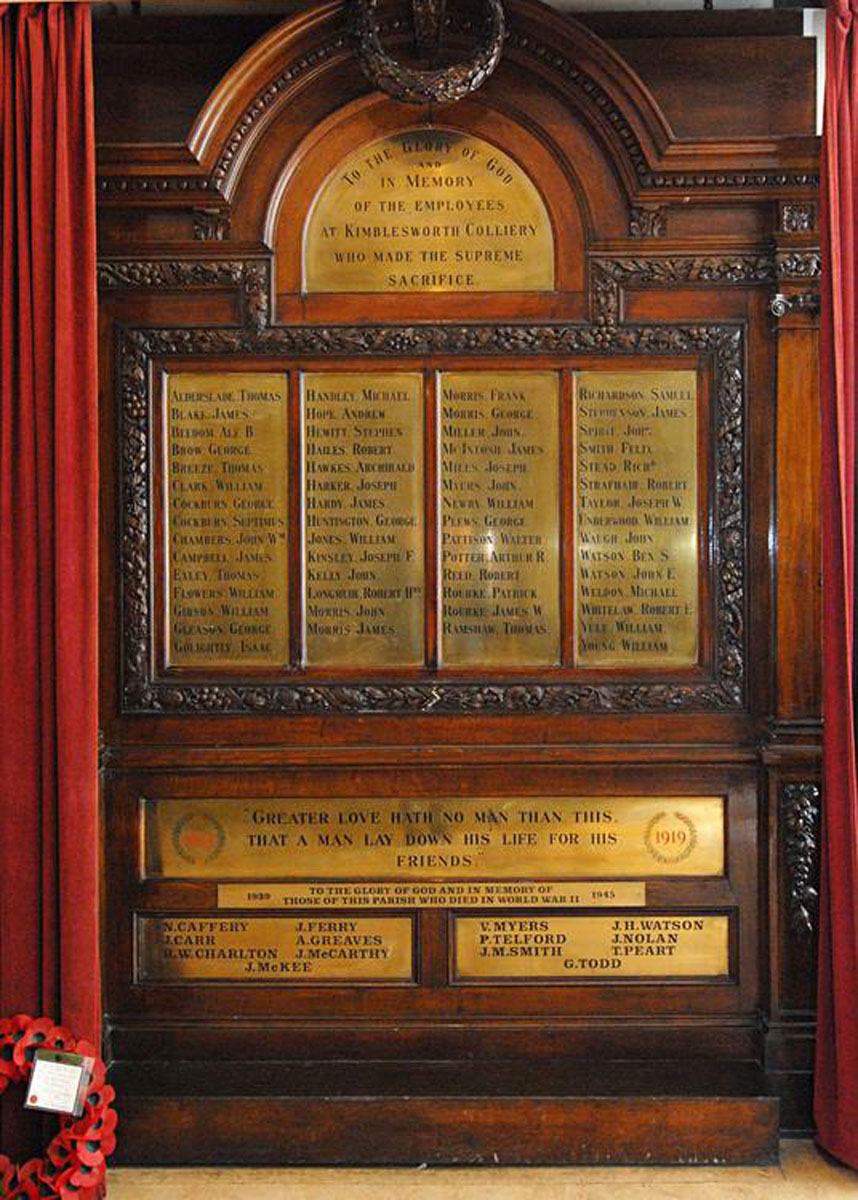 To the Glory of God
and
in Memory
of the employees
at Kimblesworth Colliery
who made the supreme
sacrifice.
Alderslade, Thomas
Blake, James.
Beedom, Alf B.
Brow, George
Breeze, Thomas
Clark, William
Cockburn, George
Cockburn, Septimus
Chambers, John Wm
Campbell, James.
Exley, Thomas
Flowers, William
Gibson, William
Gleason, George
Golightly, Isaac
Handley, Michael
Hope, Andrew
Hewitt, Stephen
Hailes, Robert
Hawkes, Archibald
Harker, Joseph
Hardy, James
Huntington, George
Jones, William
Kinsley, Joseph F.
Kelly, John
Longmuir, Robert Hry
Morris, John
Morris, James
Morris, Frank
Morris, George
Miller, John
McIntosh, James
Miles, Joseph
Myers, John
Newby, William
Plews, George
Pattison, Walter
Potter, Arthur R.
Reed, Robert
Rourke, Patrick
Rourke, James W.
Ramshaw, Thomas.
Richardson, Samuel
Stephenson, James.
Spirit, John
Smith, Felix
Stead, Richd
Strafhair, Robert
Taylor, Joseph W
Underwood, William.
Waugh, John
Watson, Ben S.
Watson, John E.
Weldon, Michael
Whitelaw, Robert E
Yule, William.
Young, William
"Greater love hath no man than this,
that a man lay down his life for his
friends."
1919
1939 TO THE GLORY OF GOD AND IN MEMORY OF 1945
THOSE OF THIS PARISH WHO DIED IN WORLD WAR II
N.CAFFERY J.FERRY
J.CARR A.GREAVES
R.W.CHARLTON J.McCARTHY
J.McKEE
V.MYERS J.H.WATSON
P.TELFORD J.NOLAN
J.M.SMITH T.PEART
G.TODD